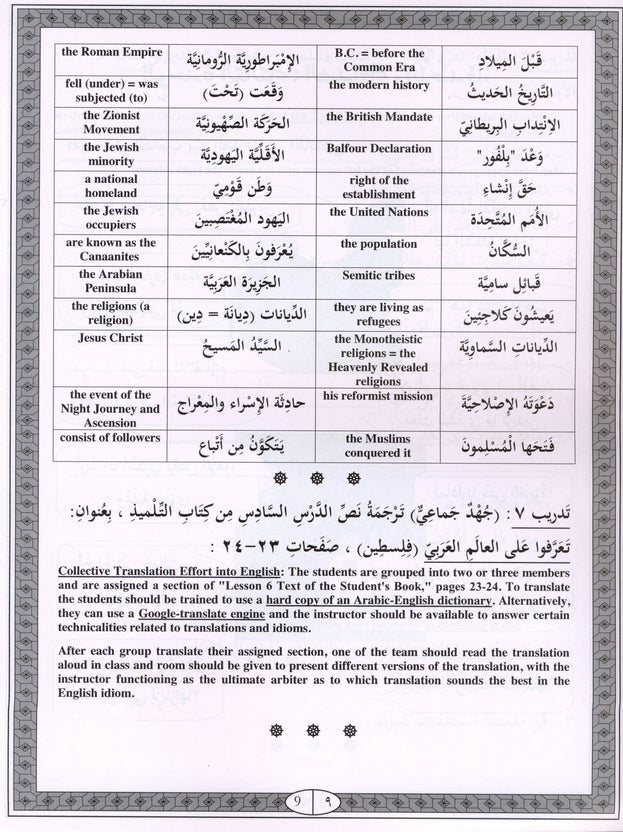 the Roman Empire
الإِمْبراطورِيَّة الرُّومانِيَّة
B.C. = before the
Common Era
قَبْلَ المِيلادِ
fell (under) = was
subjected (to)
وَقَعَت (تَحْتَ)
the modern history
التَّارِيخُ الحَديثُ
the Zionist
Movement
الحَرَكَة الصِّهْيونِيَّة
the British Mandate
الاِنْتِداب البِريطانِيّ
the Jewish
minority
الأَقَلِّيَّة اليَهودِيَّة
Balfour Declaration
وَعْدَ "بِلْفُور"
a national
homeland
وَطَن قَوْمِيّ
right of the
establishment
حَقَّ إِنْشاءِ
the Jewish
occupiers
اليَهود المُغْتَصِبينَ
the United Nations
الأُمَم المُتَّحِدَة
are known as the
Canaanites
يُعْرَفونَ بِالكَنْعانِيِّينَ
the population
السُّكَّانُ
the Arabian
Peninsula
الجَزِيرَة العَرَبِيَّة
Semitic tribes
قَبائِل سامِيَّة
the religions (a
religion)
الدِّيانات (دِيانَة = دِين)
they are living as
refugees
يَعيشُونَ كَلاجِئِينَ
Jesus Christ
السَّيِّدُ المَسيحُ
the Monotheistic
religions = the
Heavenly Revealed
religions
الدِّياناتِ السَّماوِيَّة
the event of the
Night Journey and
Ascension
حادِثَة الإِسْراء والمِعْراج
his reformist mission
دَعْوَتَهُ الإِصْلاحِيَّةَ
consist of followers
يَتَكَوَّنُ مِن أَتْباع
the Muslims
conquered it
فَتَحَها الْمُسْلِمونَ
تدريب ٧ : (جُهْدٌ جَماعِيٌّ) تَرْجَمَةُ نَصِّ الدَّرْسِ السَّادِسِ مِن كِتابِ التِّلْمِيذِ ، بِعُنوانِ:
تَعَرَّفوا عَلى العالَمِ العَرَبِيِّ (فِلِسطِين) ، صَفَحاتِ ٢٣-٢٤ :
Collective Translation Effort into English: The students are grouped into two or three members
and are assigned a section of "Lesson 6 Text of the Student's Book," pages 23-24. To translate
the students should be trained to use a hard copy of an Arabic-English dictionary. Alternatively,
they can use a Google-translate engine and the instructor should be available to answer certain
technicalities related to translations and idioms.
After each group translate their assigned section, one of the team should read the translation
aloud in class and room should be given to present different versions of the translation, with the
instructor functioning as the ultimate arbiter as to which translation sounds the best in the
English idiom.
9 ٩